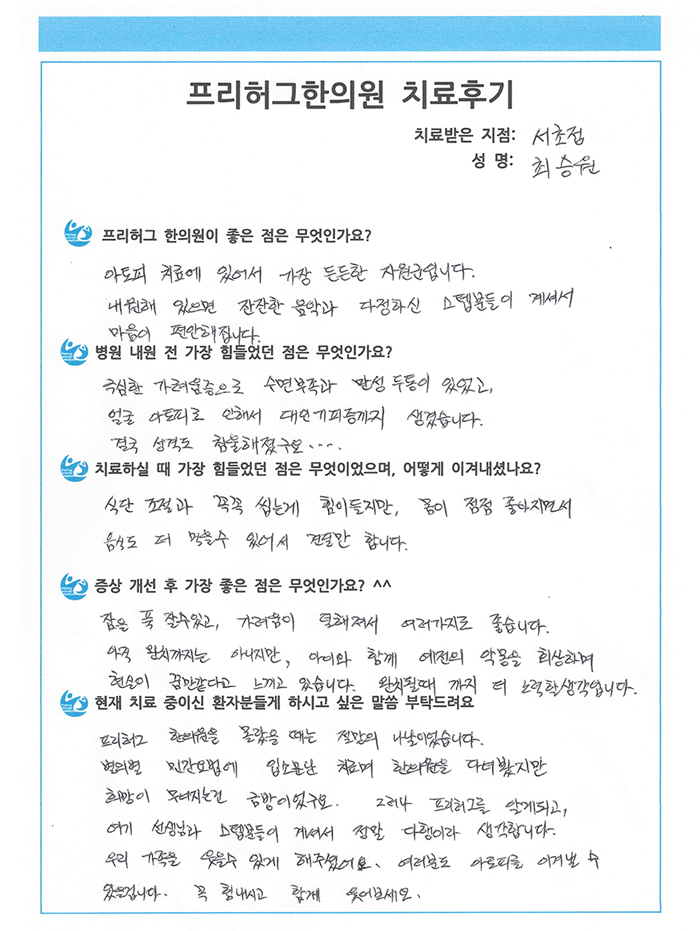 프리허그한의원 치료후기
치료받은 지점: 서초점
성 명: 최승원
프리허그 한의원이 좋은 점은 무엇인가요?
아토피 치료에 있어서 가장 든든한 자원군입니다.
내원해 있으면 잔잔한 음악과 다정하신 스텝분들이 계셔서
마음이 편안해집니다.
병원 내원 전 가장 힘들었던 점은 무엇인가요?
극심한 가려움증으로 수면부족과 만성 두통이 있었고,
얼굴 아토피로 인해서 대인기피증까지 생겼습니다.
결국 성격도 침울해졌구요....
치료하실 때 가장 힘들었던 점은 무엇이었으며, 어떻게 이겨내셨나요?
식단 조절과 꼭꼭 씹는게 힘이들지만, 몸이 점점 좋아지면서
음식도 더 먹을수 있어서 견딜만 합니다.
증상 개선 후 가장 좋은 점은 무엇인가요? ^^
잠을 푹 잘수있고, 가려움이 덜해져서 여러가지로 좋습니다.
아직 완치까지는 아니지만, 아이와 함께 예전의 악몽을 회상하며
현실이 꿈만같다고 느끼고 있습니다. 완치될때 까지 더 노력할생각입니다.
현재 치료 중이신 환자분들게 하시고 싶은 말씀 부탁드려요
프리허그 한의원을 몰랐을 때는 절망의 나날이었습니다.
별의별 민간요법에 입소문난 치료며 한의원을 다녀봤지만
희망이 무너지는건 금방이었구요. 그러나 프리허그를 알게되고,
여기 선생님과 스텝분들이 계셔서 정말 다행이라 생각합니다.
우리 가족을 웃을수 있게 해주셨어요. 여러분도 아토피를 이겨낼 수
있을겁니다. 꼭 힘내시고 함께 웃어보세요.